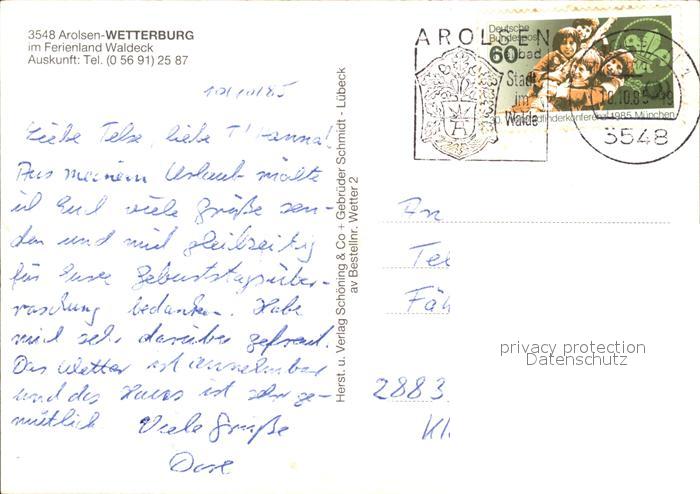 3548 Arolsen-WETTERBURG
im Ferienland Waldeck
Auskunft: Tel. (0 56 91) 25 87
10/10/85
Liebe Telse, liebe T anna!
Aus meinem Urlaub möchte
ich Euch viele Grüße sen-
den und mich gleichzeitig
für Eure Geburtstagsüber-
raschung bedanken. Habe
mich sehr darüber gefreut.
Das Wetter ist annehmbar
und das Haus ist sehr ge-
mütlich. Viele Grüße
Herst. u. Verlag Schöning & Co + Gebrüder Schmidt - Lübeck
av Bestellnr. Wetter 2
AROLSEN
Heilbad
Stadt
im
Walde
Deutsche
Bundespost
60
30. Weltpfadfinderkonferenz 1985 München
10.10.85
3548
An
Tel
Fäh
2883
Kl
privacy protection
Datenschutz